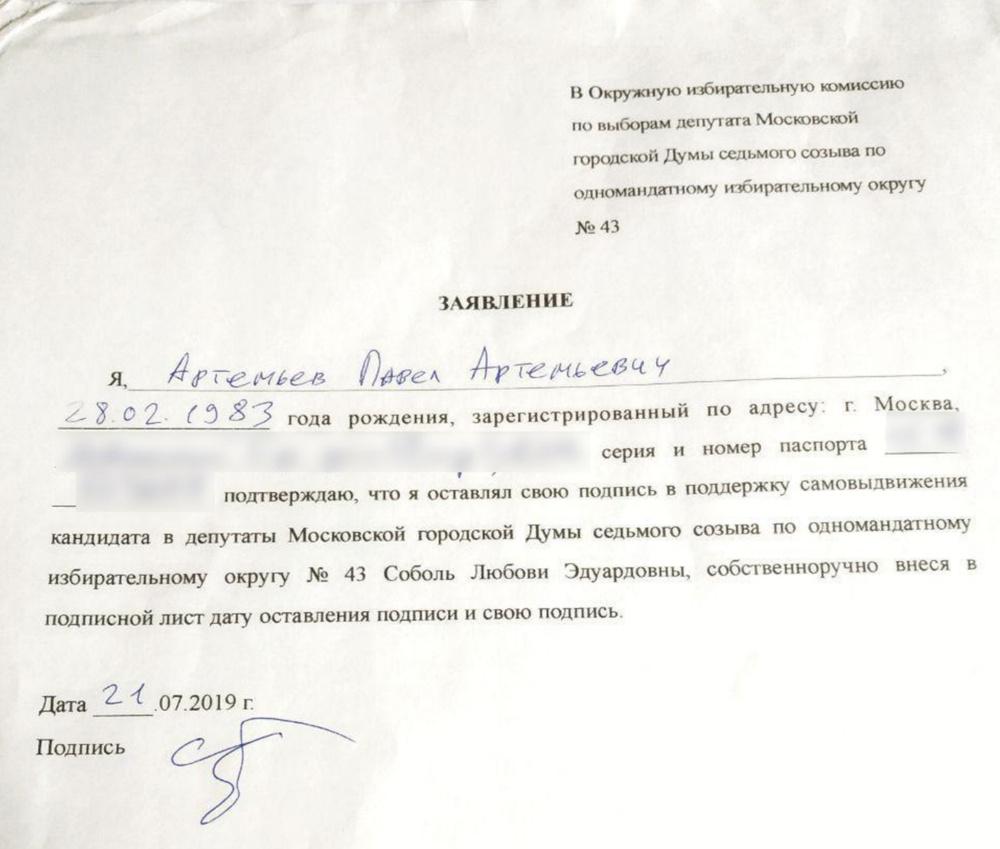 В Окружную избирательную комиссию
по выборам депутата Московской
городской Думы седьмого созыва по
одномандатному избирательному округу
№ 43
ЗАЯВЛЕНИЕ
Я, Артемьев Павел Артемьевич,
28.02.1983 года рождения, зарегистрированный по адресу: г. Москва,
серия и номер паспорта
подтверждаю, что я оставлял свою подпись в поддержку самовыдвижения
кандидата в депутаты Московской городской Думы седьмого созыва по одномандатному
избирательному округу № 43 Соболь Любови Эдуардовны, собственноручно внеся в
подписной лист дату оставления подписи и свою подпись.
Дата 21.07.2019 г.
Подпись